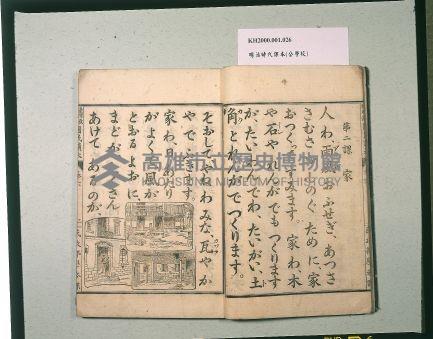 KH2000.001.026
明治時代課本(公學校)
第二課 家
人わ雨風おふせぎ、あつさ
さむさおしのぐために家
おつくってすみます。家わ、木
や石やれんがでもつくります
が、たいわんでわ、たいがい、土
角とれんがでつくります。
そおして、やねわみな、瓦やか
やでふきます。
家わ日あたり
がよくて、風が
とおるよおに、
まどがたくさん
あけてあるのが、
高雄市立歷史博物館
KAOHSIUNG MUSEUM OF HISTORY